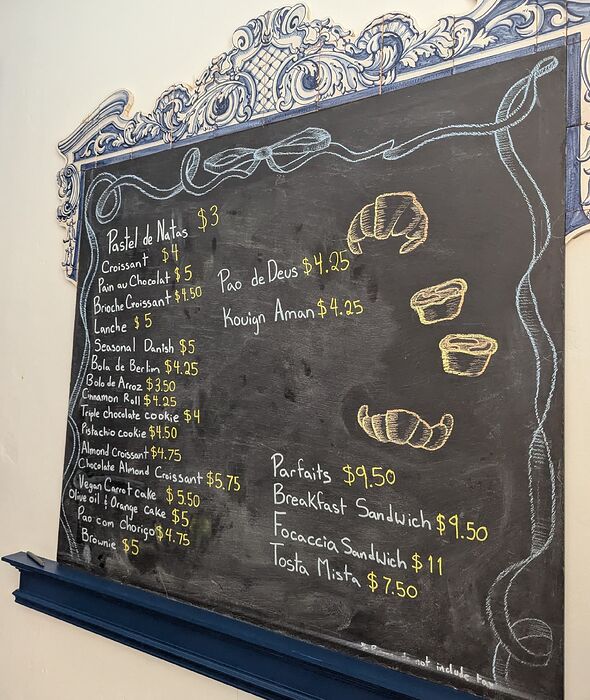 Pastel de Natas $3
Croissant $4
Pain au Chocolat $5
Brioche Croissant $4.50
Lanche $5
Seasonal Danish $5
Bola de Berlim $4.25
Bolo de Arroz $3.50
Cinnamon Roll $4.25
Triple chocolate cookie $4
Pistachio cookie $4.50
Almond Croissant $4.75
Chocolate Almond Croissant $5.75
Vegan Carrot cake $5.50
Olive oil & Orange cake $5
Pao com Choriço $4.75
Brownie $5
Pao de Deus $4.25
Kouign Aman $4.25
Parfaits $9.50
Breakfast Sandwich $9.50
Focaccia Sandwich $11
Tosta Mista $7.50
not include tax